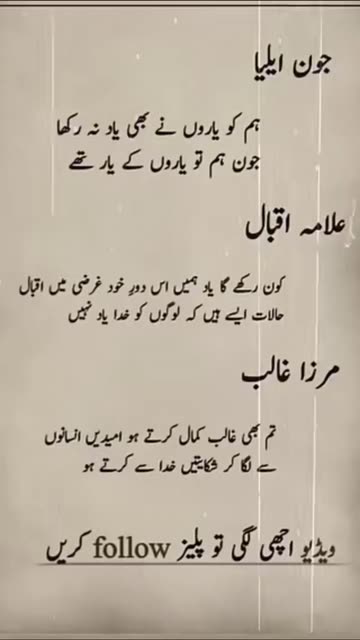 جون ایلیا
ہم کو یاروں نے بھی یاد نہ رکھا
جون ہم تو یاروں کے یار تھے
علامہ اقبال
کون رکھے گا یاد ہمیں اس دورِ خود غرضی میں اقبال
حالات ایسے ہیں کہ لوگوں کو خدا یاد نہیں
مرزا غالب
تم بھی غالب کمال کرتے ہو امیدیں انسانوں
سے لگا کر شکایتیں خدا سے کرتے ہو
ویڈیو اچھی لگی تو پلیز follow کریں